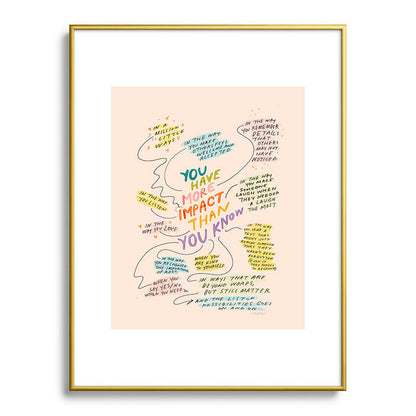 IN A
MILLION
LITTLE
WAYS
IN THE WAY
YOU MAKE
OTHERS FEEL
WELCOME AND
ACCEPTED
IN THE WAY
YOU REMEMBER
DETAILS
THAT
OTHERS
MAY NOT
HAVE
NOTICED
YOU
HAVE
MORE
IMPACT
THAN
YOU KNOW
IN THE WAY
YOU MAKE
SOMEONE
LAUGH WHEN
THEY NEEDED
A LAUGH
THE MOST
IN THE WAY
YOU LISTEN
IN THE
WAY YOU LOVE
IN THE WAY
YOU RECOGNIZE
THE IMPORTANCE
OF REST
WHEN YOU
ARE KIND
TO YOURSELF
WHEN YOU
SAY YES/NO
WHEN YOU NEED TO
IN WAYS THAT ARE
BEYOND WORDS
BUT STILL MATTER
AND THE LIST OF
POSSIBILITIES GOES
ON AND ON